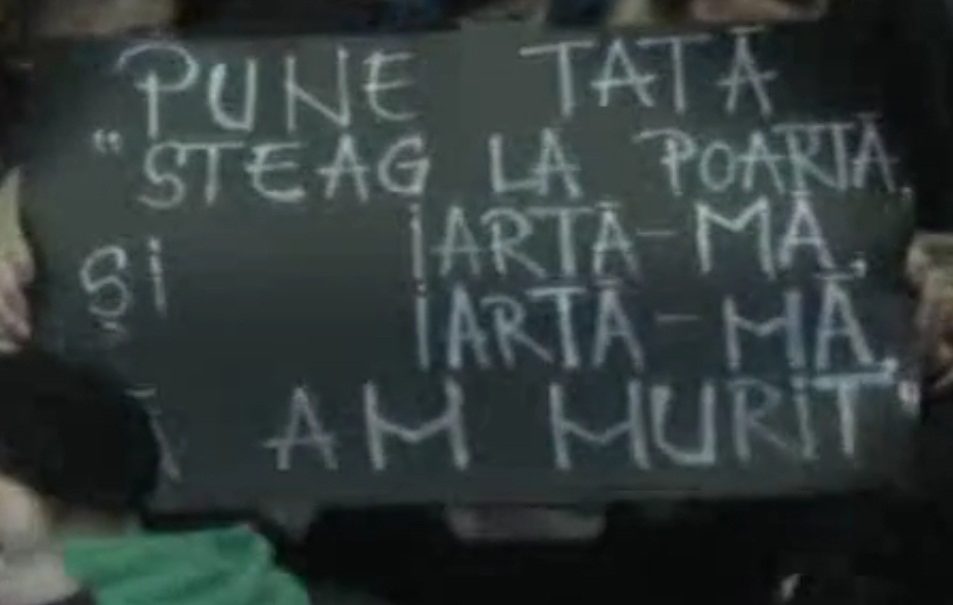 "PUNE TATĂ
"STEAG LA POARTĂ,
ȘI IARTĂ-MĂ,
IARTĂ-MĂ,
AM MURIT"